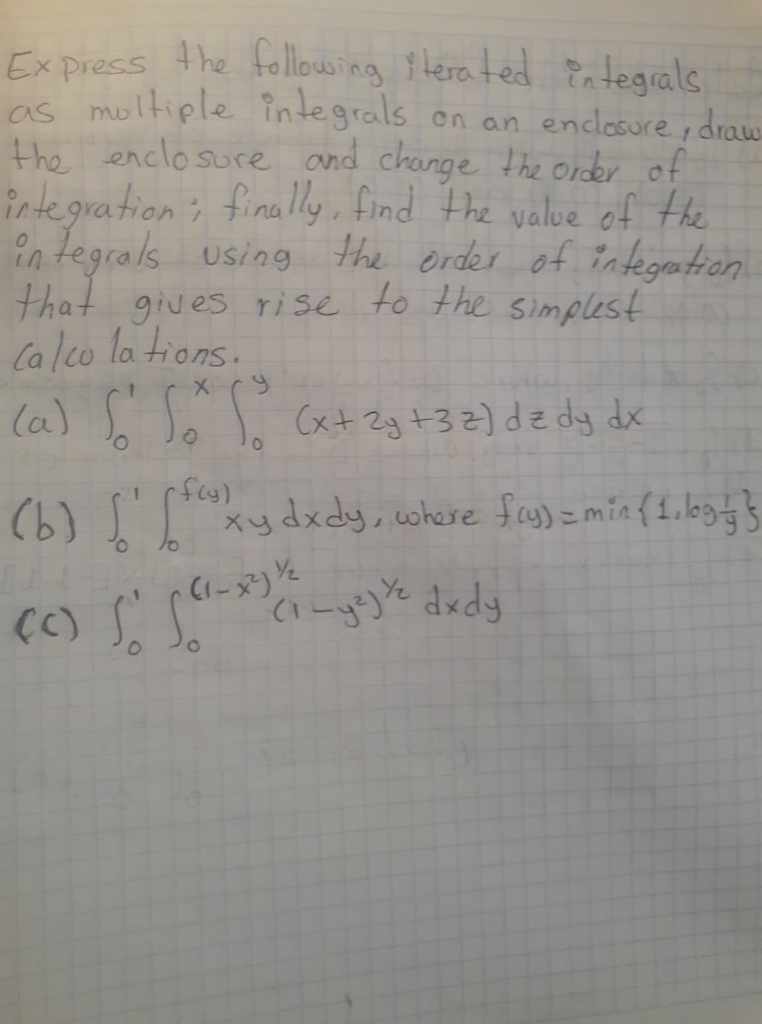 Express the following iterated integrals
as multiple integrals on an enclosure, draw
the enclosure and change the order of
integration; finally, find the value of the
integrals using the order of integration
that gives rise to the simplest
calculations.
(a) ∫₀¹ ∫₀ˣ ∫₀ʸ (x+2y+3z) dz dy dx
(b) ∫₀¹ ∫₀^f(y) xy dxdy, where f(y) = min{1, log 1/y}
(c) ∫₀¹ ∫₀^(1-x²)^½ (1-y²)^½ dxdy